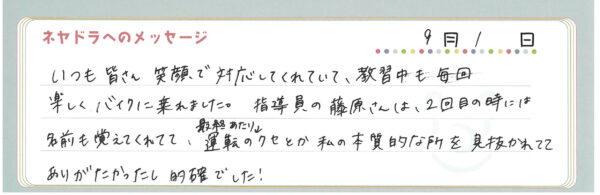 ネヤドラへのメッセージ
9月1日
いつも皆さん笑顔で対応してくれていて、教習中も毎回
楽しくバイクに乗れました。指導員の藤原さんは、2回目の時には
最終あたり↓
名前も覚えてくれてて、運転のクセとか私の本質的な所を見抜かれてて
ありがたかったし的確でした!